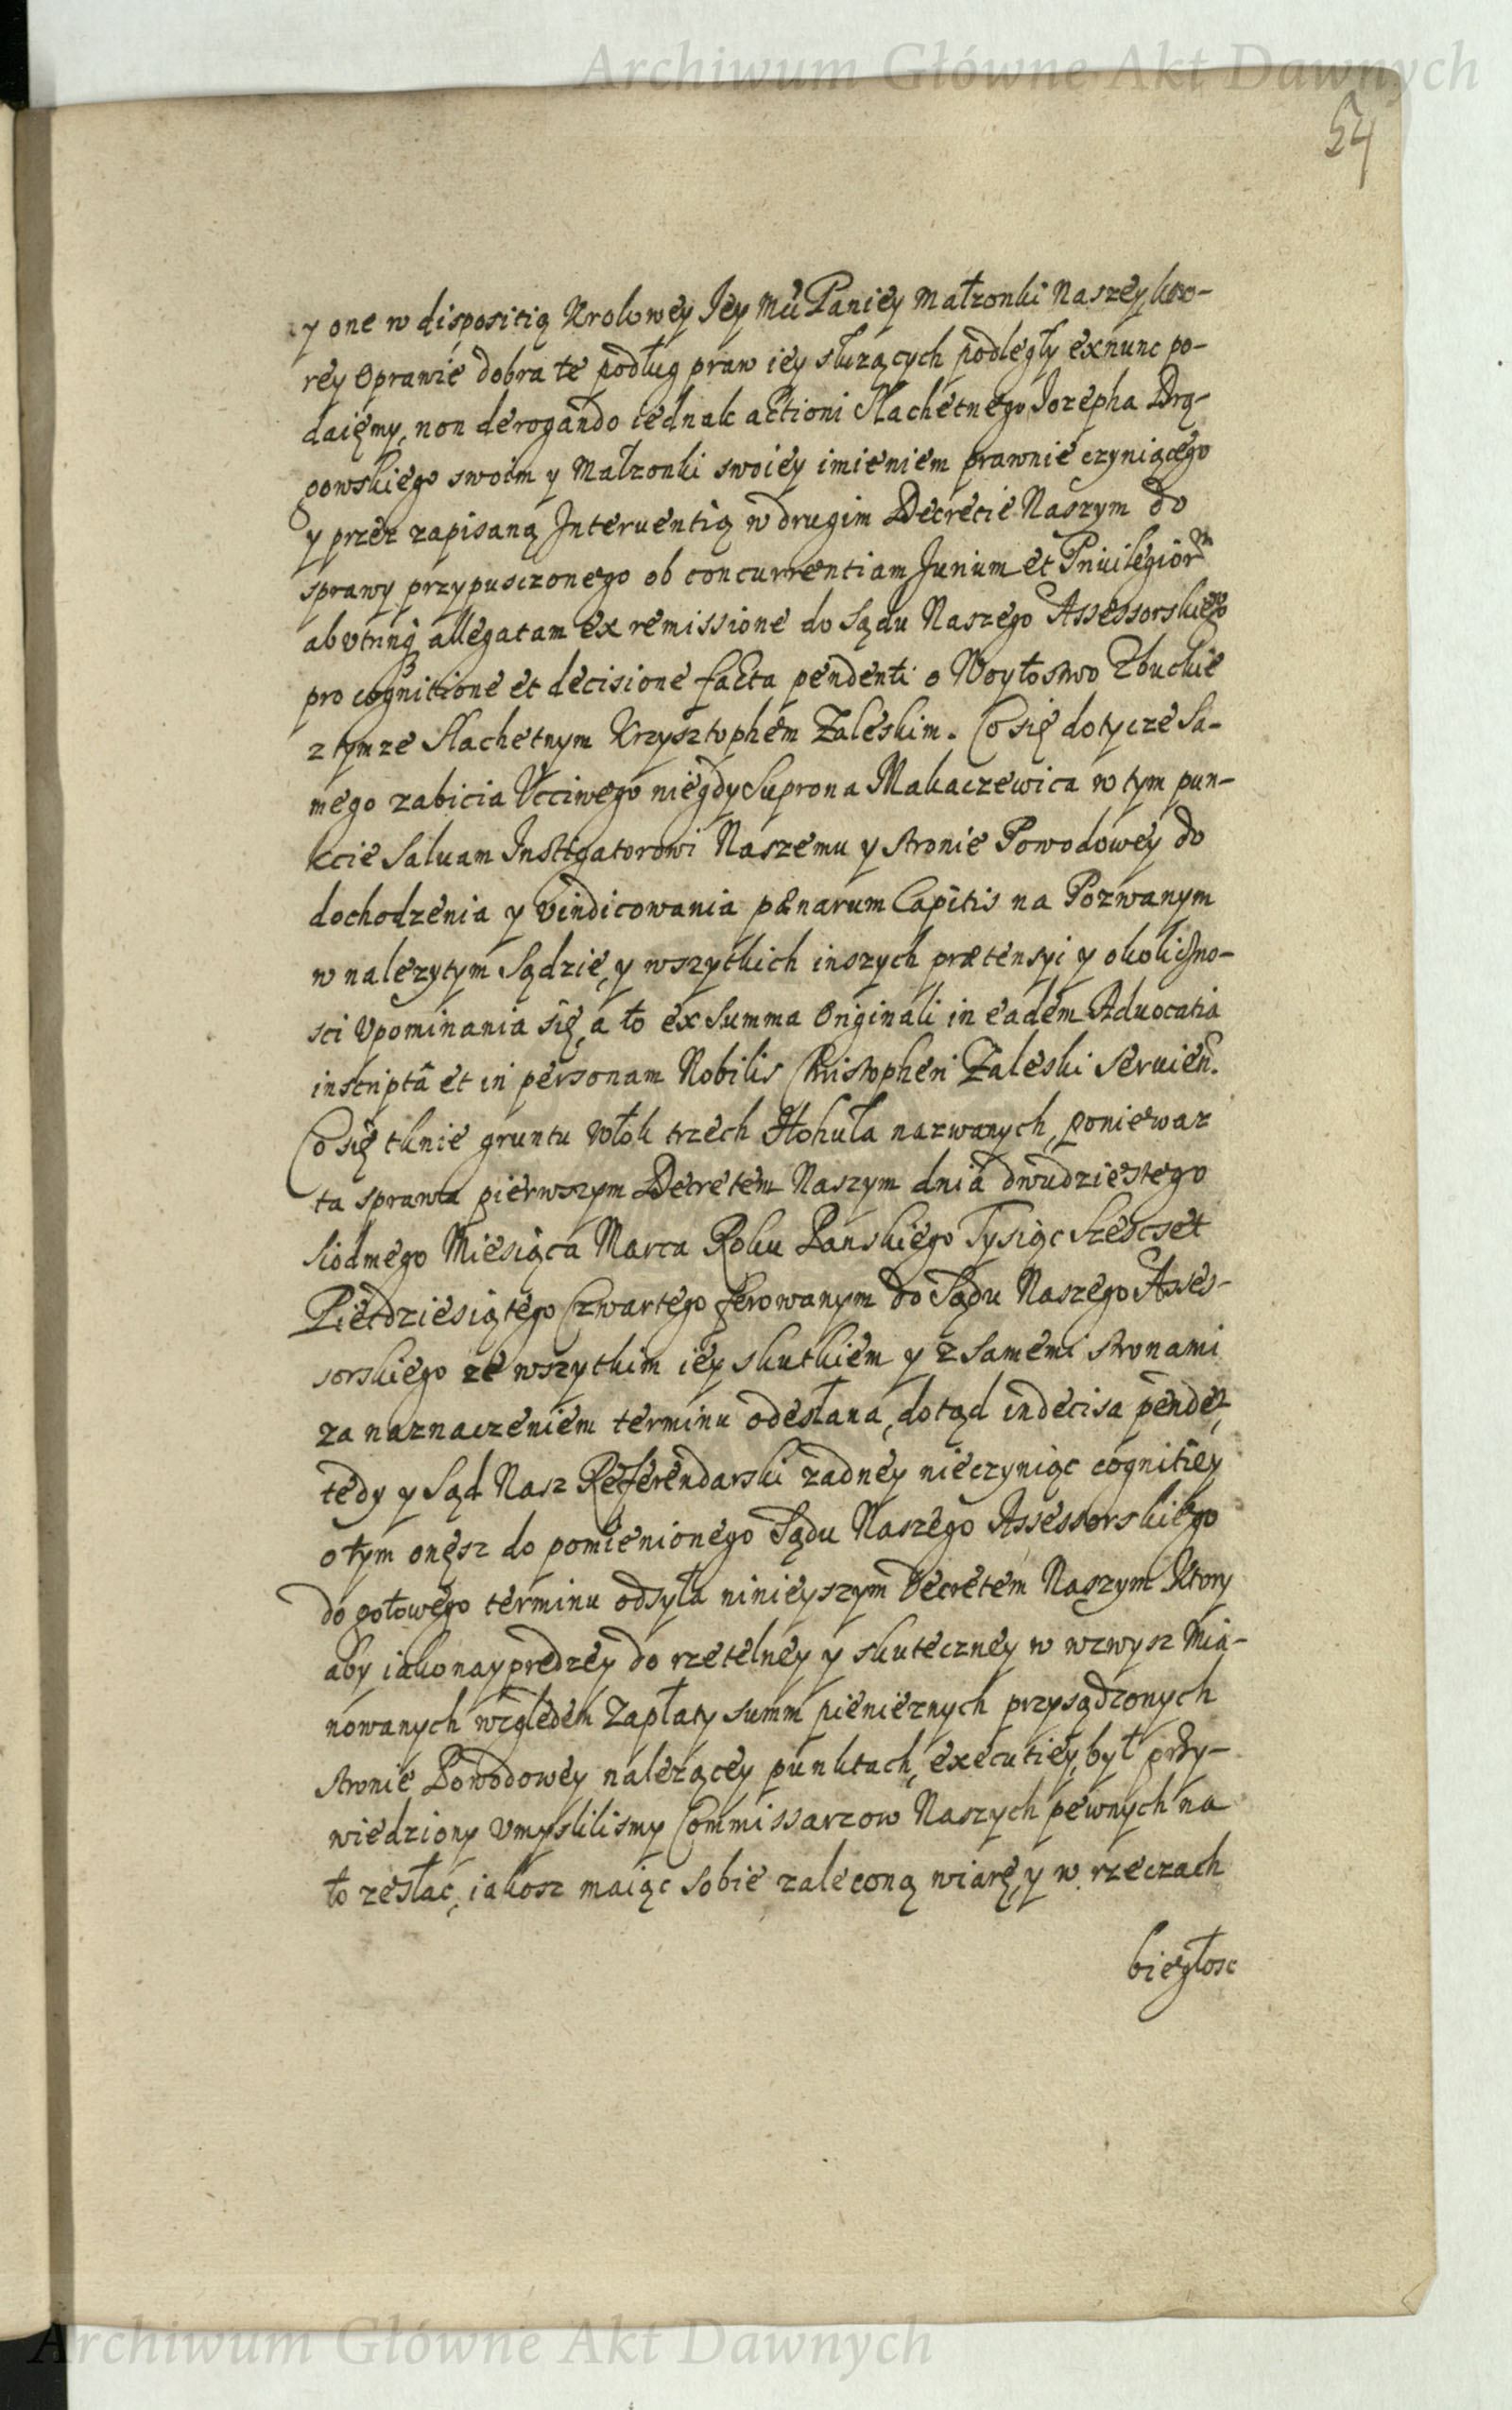 Archiwum Główne Akt Dawnych
54
y one w dispositią Krolowey Jey Mći Paniey Małzonki Naszey kto-
rey Oprawie dobra te podług praw iey słuzących podległy exnunc po-
daięmy, non derogando iednak actioni Slachetnego Jozepha Drą-
gowskiego swoim y Małzonki swoiey imieniem prawnie czyniącego
y przez zapisaną Interuentią w drugim Decrecie Naszym do
sprawy przypusczonego ob concurrentiam Jurium et Priuilegiorm
abvtrinq allegatam ex remissione do Sądu Naszego Assessorskiego
pro cognitione et decisione facta pendenti o Woytostwo Zbuckie
z tymze Slachetnym Krzysztophem Zaleskim. Co się dotycze Sa-
mego zabicia Vcciwego niegdy Suprona Makaczewica w tym pun-
kcie Saluam Instigatorowi Naszemu y stronie Powodowey do
dochodzenia y vindicowania pænarum Capitis na Pozwanym
w nalezytym Sądzie, y wszytkich inszych prætensyi y okolicno-
sci Vpominania się, a to ex Summa Originali in eadem Aduocatia
inscriptâ et in personam Nobilis Christopheri Zaleski Seruien.
Co się tknie gruntu włok trzech Hohuła nazwanych, poniewaz
ta sprawa pierwszym Decretem Naszym dnia dwudziestego
Siodmego Miesiąca Marca Roku Panskiego Tysiąc Szescset
Piećdziesiątego Czwartego ferowanym do Sądu Naszego Asses-
sorskiego ze wszytkim iey skutkiem y z Samemi stronami
za naznaczeniem terminu odesłana, dotąd indecisa pendet,
tedy y Sąd Nasz Referendarski zadney nieczyniąc cognitiey
o tym onęsz do pomienionego Sądu Naszego Assessorskiego
do gotowego terminu odsyła ninieyszym Decretem Naszym Ktory
aby iako nayprędzey do rzetelney y skuteczney w wzwysz Mia-
nowanych względem Zapłaty summ pienięznych przysądzonych
stronie Powodowey nalezącey punktach, executiey, był przy-
wiedziony Vmyslilismy Commissarzow Naszych pewnych na
to zesłac, iakosz maiąc Sobie zaleconą wiarę, y w rzeczach
biegłosc
Archiwum Główne Akt Dawnych